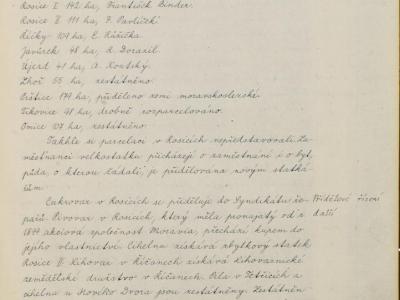 Rosice I 142 ha, František Binder.
Rosice II 111 ha, F. Pavlíčků
Říčky 104 ha, E. Růžička
Javůrek 48 ha, R. Dorazil
Újezd 41 ha, A. Koutský
Zhoř 55 ha, zestátněno.
Prštice 179 ha, přiděleno zemi moravskoslezské
Tikovice 98 ha, drobně rozparcelováno.
Omice 107 ha, zestátněno.
Takhle si parcelaci v Rosicích nepředstavovali. Za-
městnanci velkostatku přicházejí o zaměstnání i o byt,
půda, o kterou žádali, je přidělována novým statká-
řům.
Cukrovar v Rosicích se přiděluje do Syndikátu ře-
pařů. Pivovar v Rosicích, který měla pronajatý od r.
1894 akciová společnost Moravia, přechází kupem do
jejího vlastnictví. Cihelnu získává zbytkový statek
Rosice I. Lihovar v Říčanech získává Lihovarnické
zemědělské družstvo v Říčanech. Pila v Tetčicích a
cihelna u Nového Dvora jsou zestátněny. Zestátněn
Přídělové řízení
další